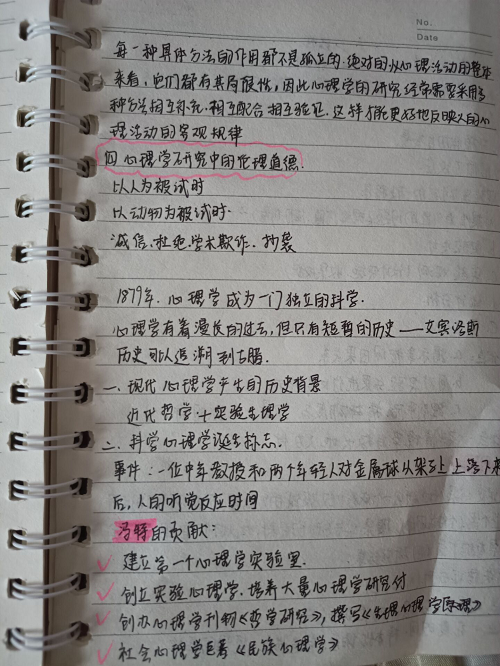 No.
Date
每一种具体方法的作用都不是孤立的.绝对的从心理活动的整体
来看,它们都有其局限性,因此心理学的研究经常需要采用多
种方法相互补充.相互配合相互验证.这样才能更好地反映人的心
理活动的客观规律
四 心理学研究中的伦理道德.
以人为被试时
以动物为被试时.
诚信.杜绝.学术欺诈.抄袭
1879年.心理学成为一门独立的科学.
心理学有着漫长的过去,但只有短暂的历史——艾宾浩斯
历史可以追溯到古腊.
一.现代心理学产生的历史背景
近代哲学+实验生理学
二.科学心理学诞生标志.
事件:一位中年教授和两个年轻人对金属球从架子上上落下来
后,人的听觉反应时间
冯特的贡献:
建立第一个心理学实验室.
创立实验心理学.培养大量心理学研究
创办心理学刊物《哲学研究》,撰写《生理心理学原理》
社会心理学巨著《民族心理学》